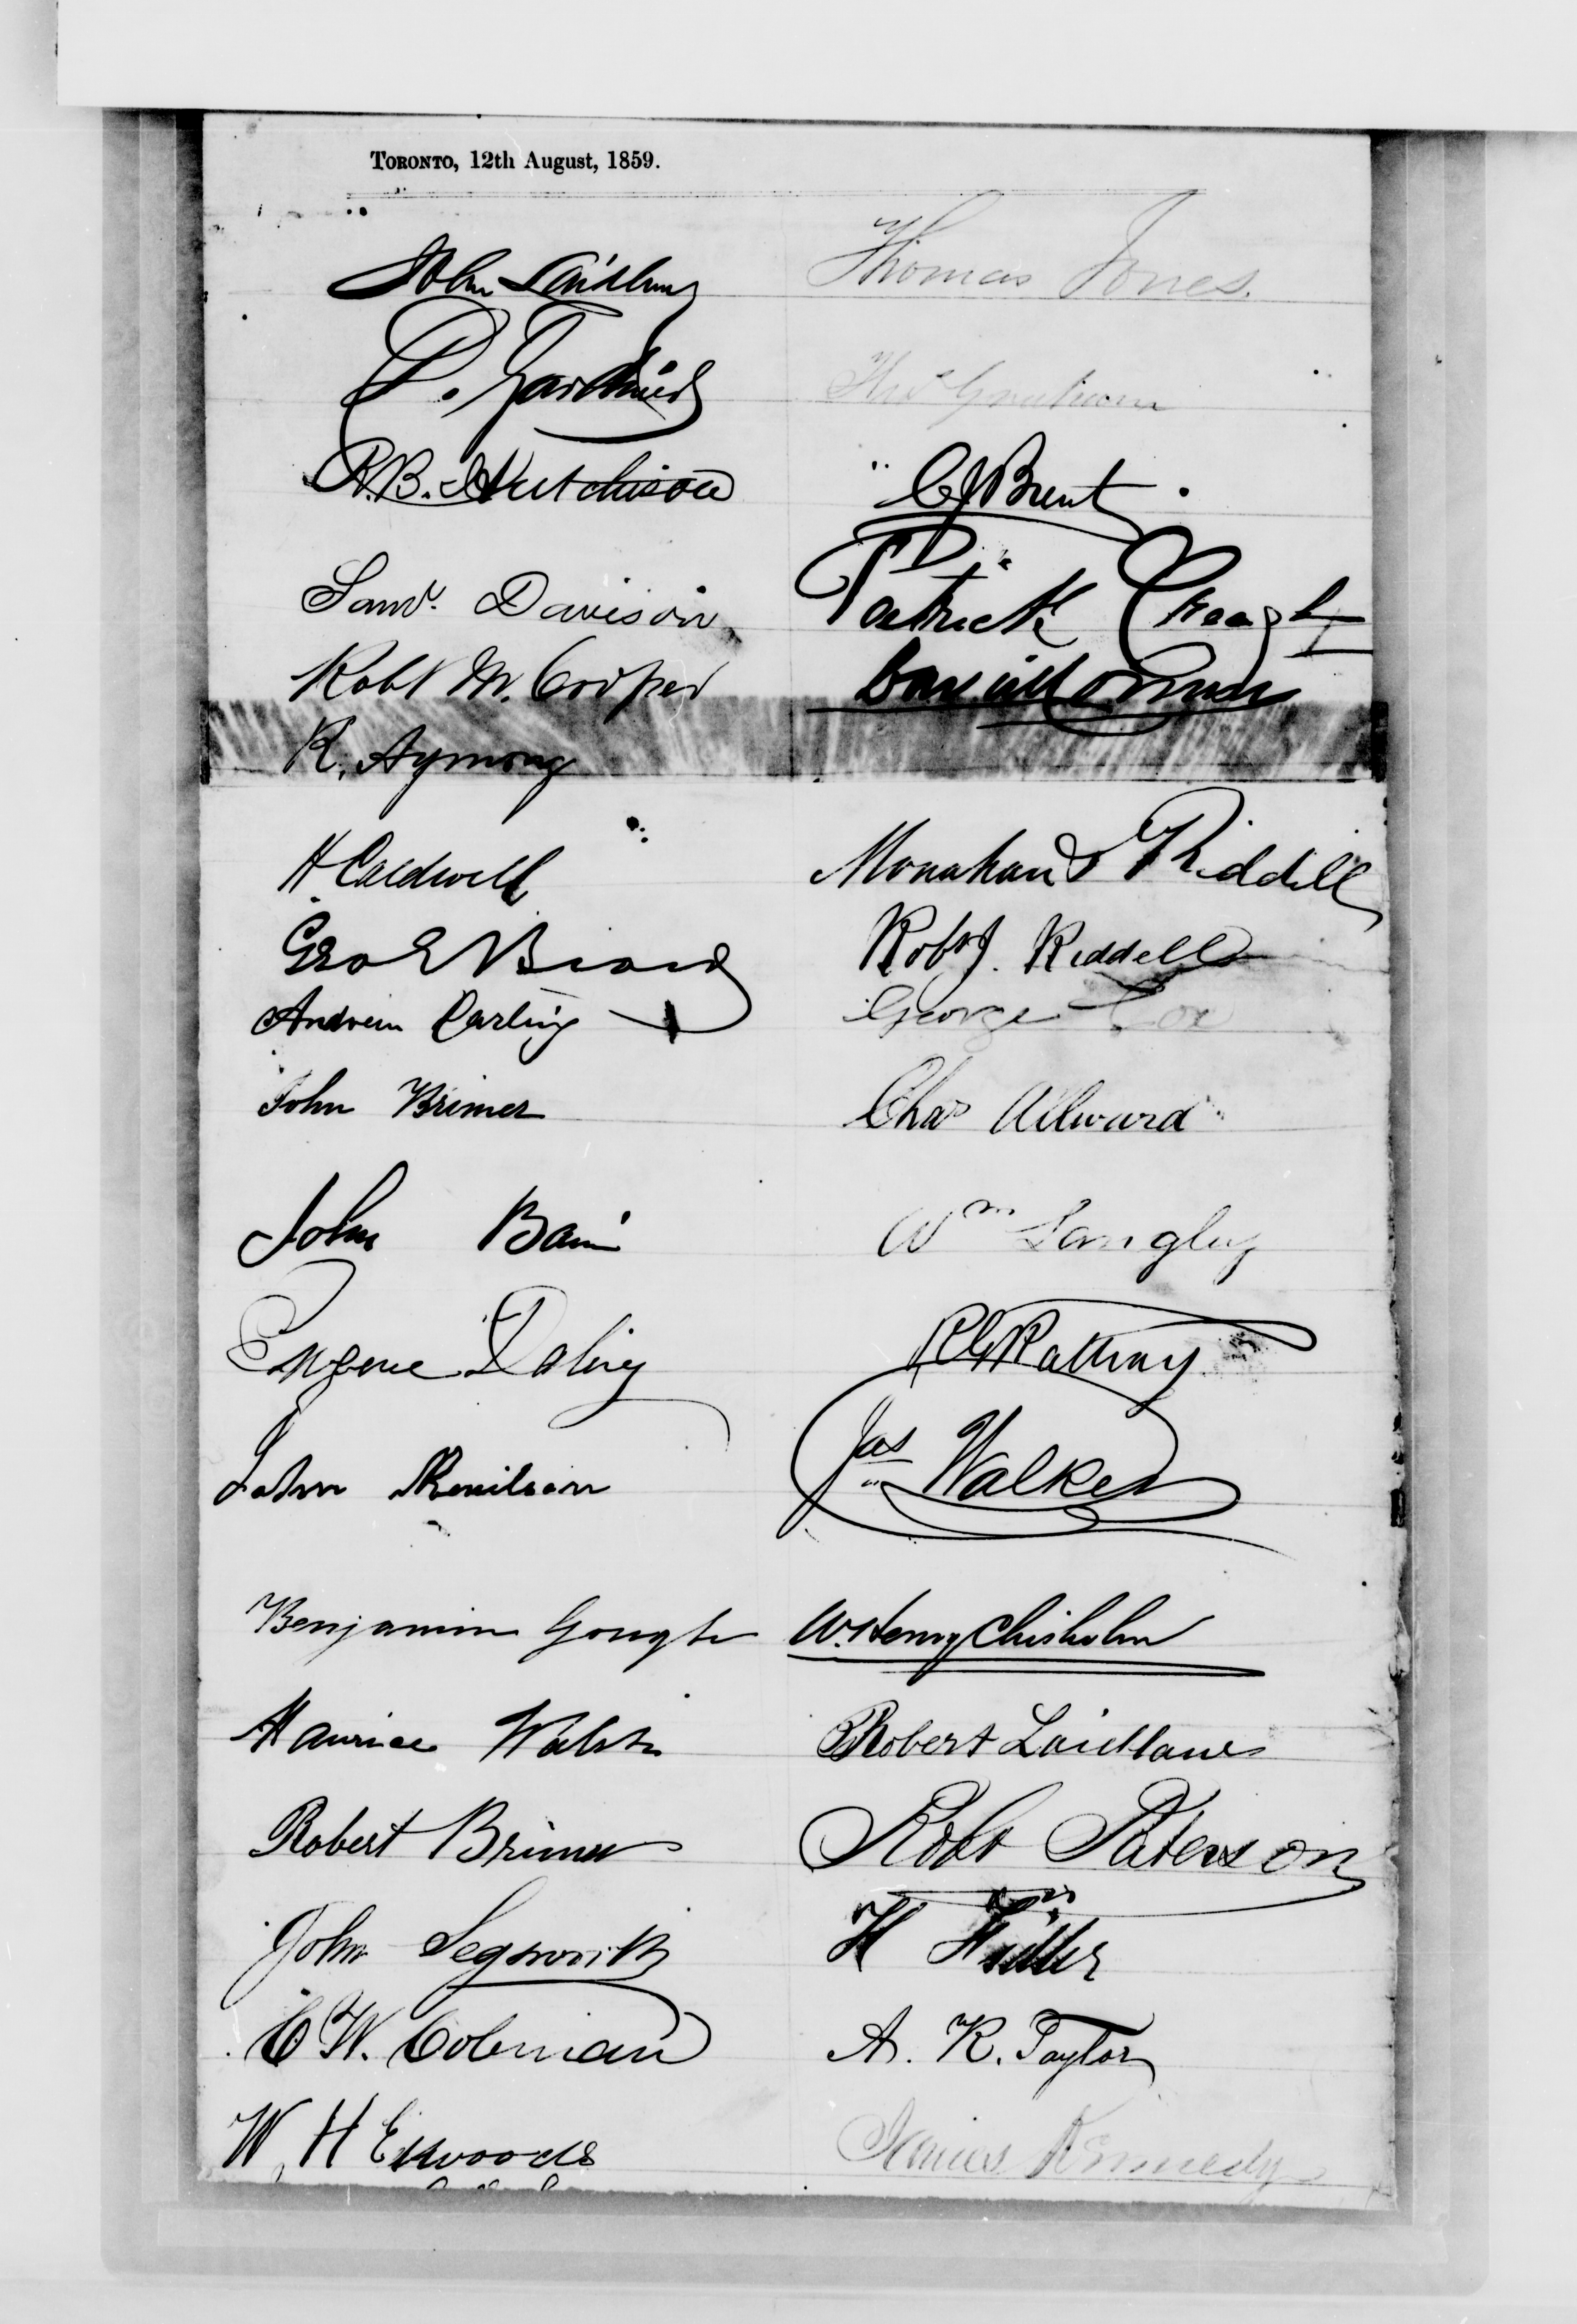 TORONTO, 12th August, 1859.
John Laidlaw
Thomas Jones.
D.
Thos Graham
R.B. Hutchison
C J Brent
Saml. Davison
Patrick
Robt M. Cooper
R. Aymong
H. Caldwell
Monahan & Riddell
Geo E
Robt J. Riddell
Andrew Darling
George Cox
John Brimer
Chas Allward
John Bain
Wm Langley
Eugene
R G Rattray
John
Jas Walker
Benjamin Gough
W. Henry Chisholm
Maurice Walsh
Robert Laidlaw
Robert Brimer
Robt Paterson
John Segsworth
H
C W. Coleman
A. R. Taylor
W. H Ellwoods
James Kennedy